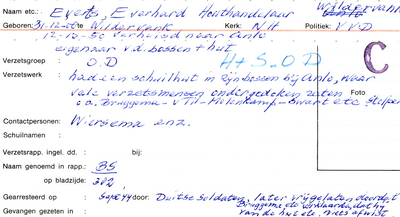 Naam etc.: Everts, Everhard Houthandelaar Wildervank
Geboren: 31-12- te Wildervank Kerk: N.H. Politiek: V.V.D
12-10-50 verhuisd naar Anlo
eigenaar v.d. bossen + hut
Verzetsgroep O.D H+S.O D
Verzetswerk had een schuilhut in zijn bossen bij Anlo, waar
vele verzetsmensen ondergedoken zaten
o.a. Bruggema - v Til - Molenkamp - Swart etc
C
Foto
Contactpersonen: Wiersema enz.
Schuilnamen :
Verzetsrapp. ingel. dd. : bij:
Naam genoemd in rapp.: BS
op bladzijde: 382
Gearresteerd op : Sept 44 door: Duitse Soldaten, later vrijgelaten doordat
Bruggema etc verklaarde, dat hij
Gevangen gezeten in : van de hut etc, niets afwist